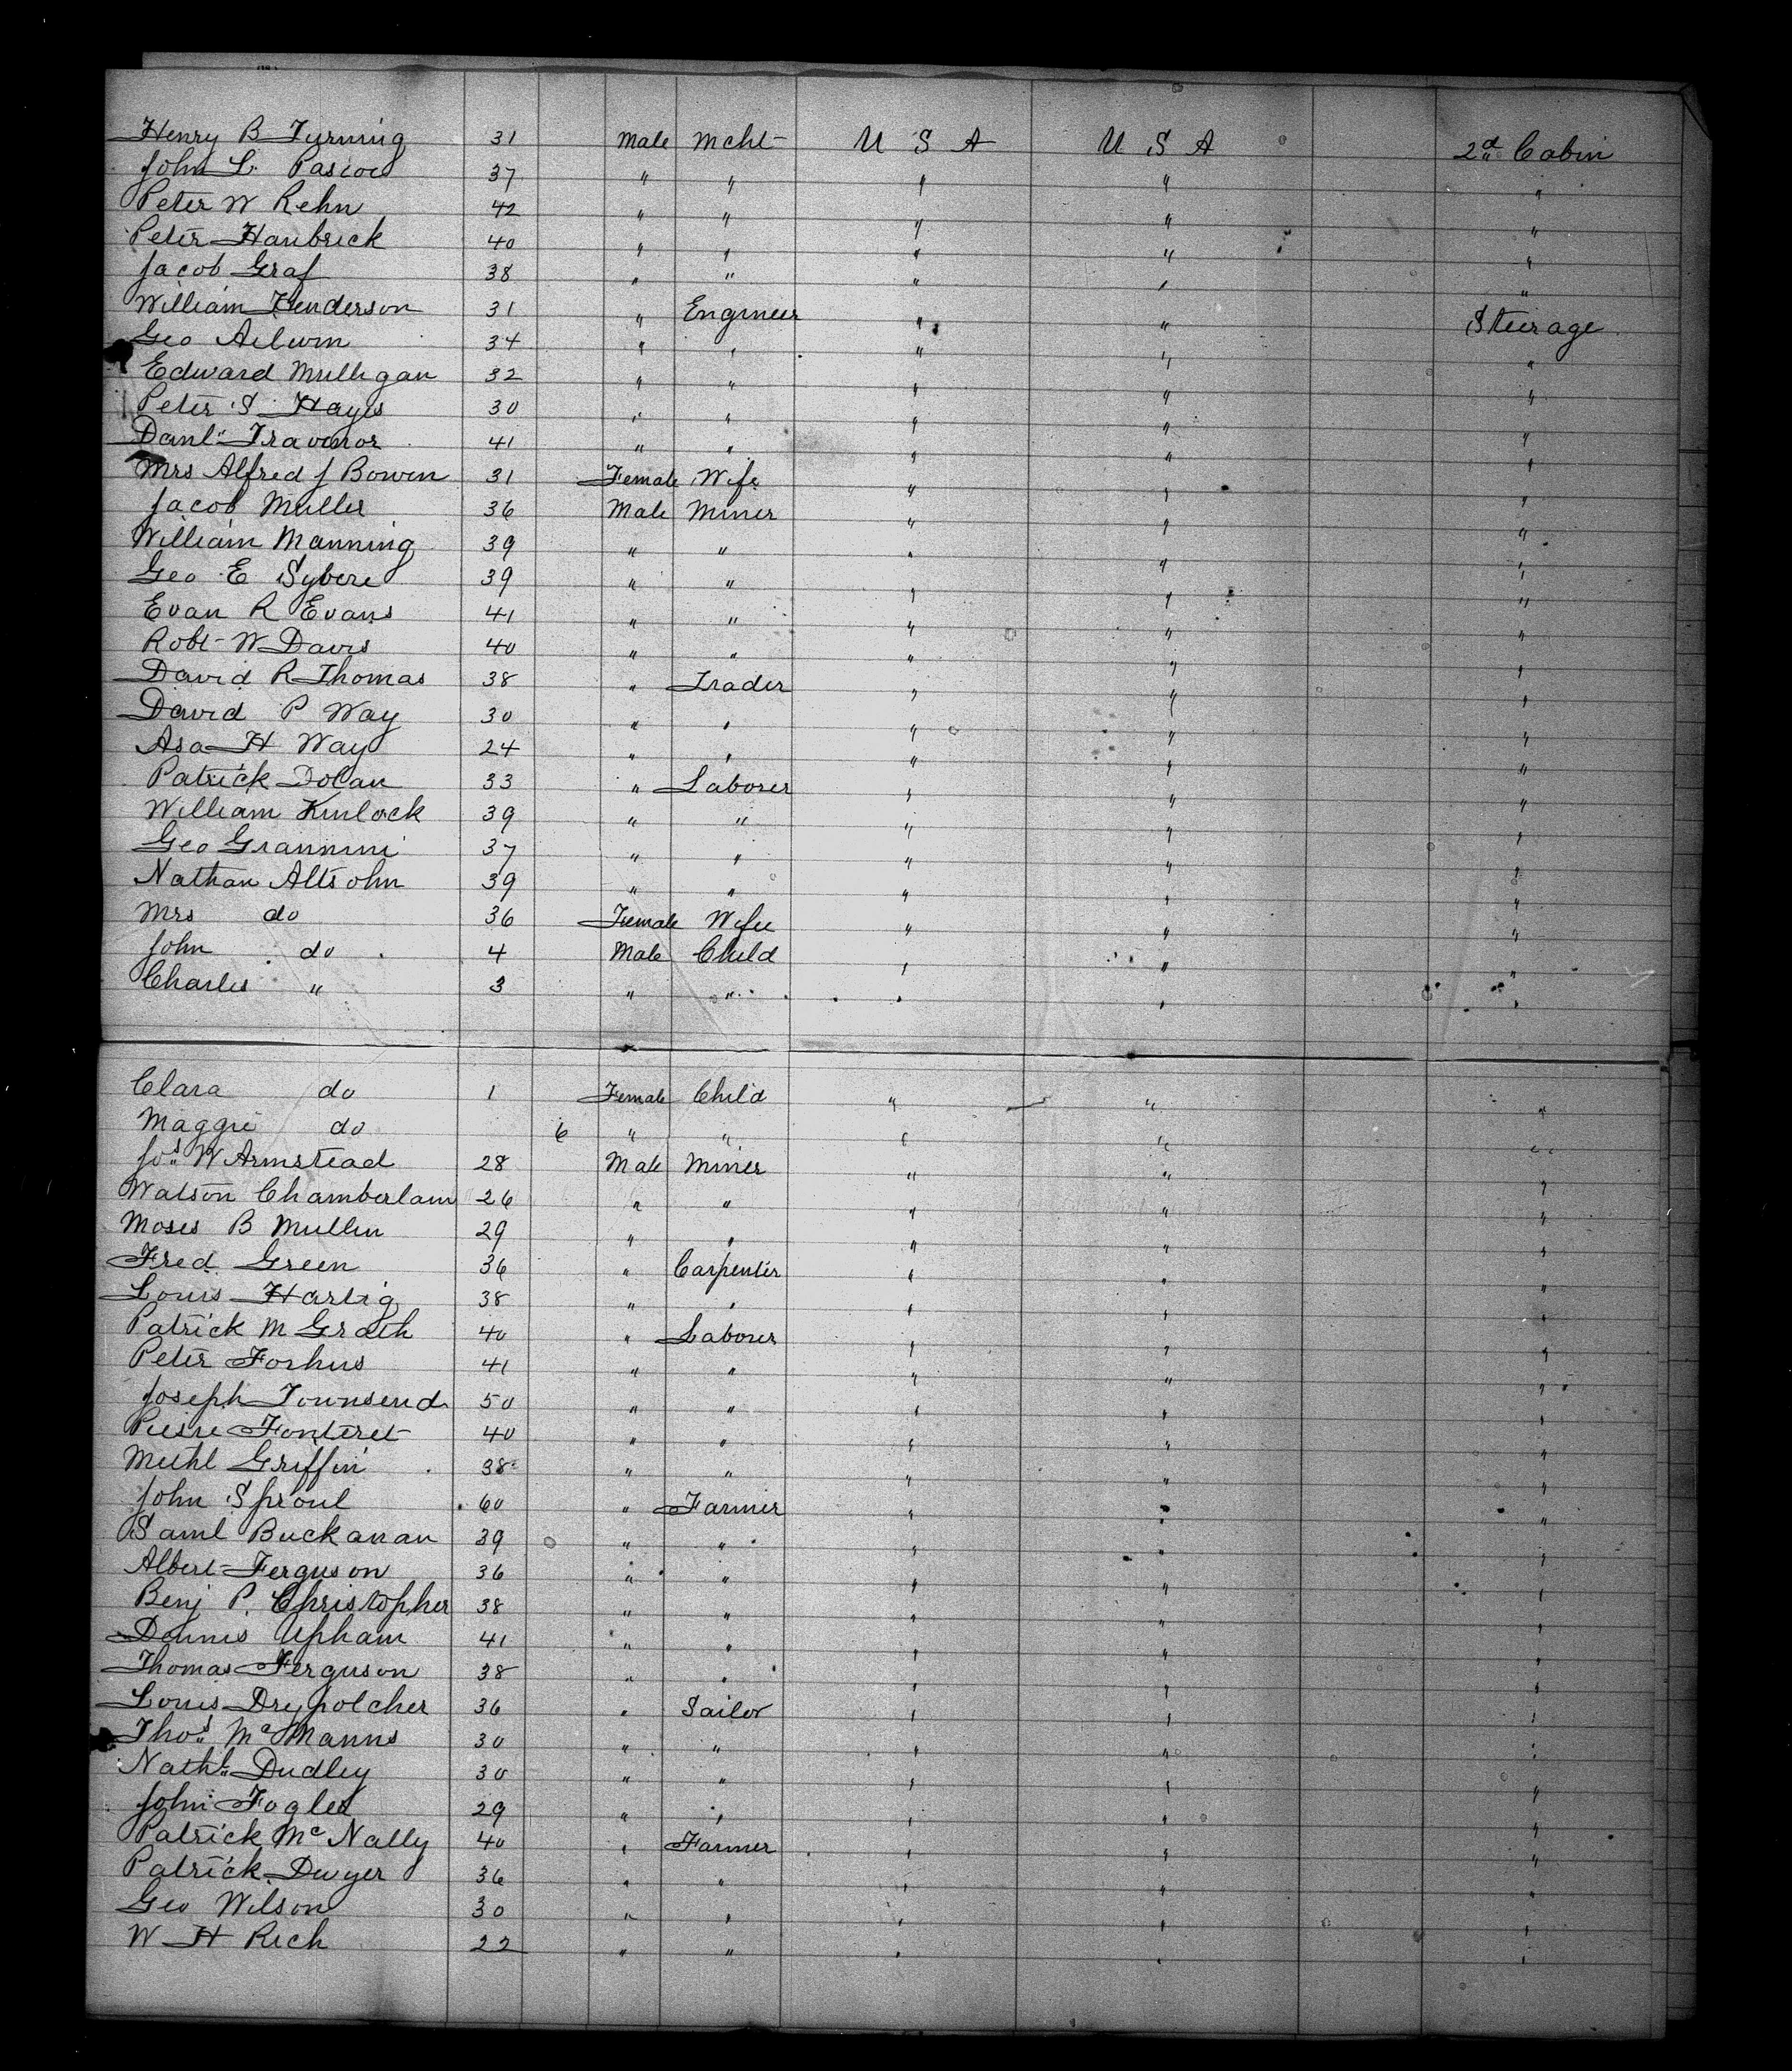 Henry B Turning 31 Male Mcht U S A U S A 2d Cabin
John L. Pascoe 37 " " " " "
Peter W Rehn 42 " " " " "
Peter Haubrick 40 " " " " "
Jacob Graf 38 " " " " "
William Henderson 31 " Engineer " " Steerage
Geo Ailwin 34 " " " " "
Edward Mulligan 32 " " " " "
Peter S Hayes 30 " " " " "
Danl Travenor 41 " " " " "
Mrs Alfred J Bowen 31 Female Wife " " "
Jacob Muller 36 Male Miner " " "
William Manning 39 " " " " "
Geo E Sybere 39 " " " " "
Evan R Evans 41 " " " " "
Robt W Davis 40 " " " " "
David R Thomas 38 " Trader " " "
David P Way 30 " " " " "
Asa H Way 24 " " " " "
Patrick Dolan 33 " Laborer " " "
William Kinlock 39 " " " " "
Geo Giannini 37 " " " " "
Nathan Altsohn 39 " " " " "
Mrs do 36 Female Wife " " "
John do 4 Male Child " " "
Charles " 3 " " " " "
Clara do 1 Female Child " " "
Maggie do 6 " " " " "
Jos W Armstead 28 Male Miner " " "
Watson Chamberlain 26 " " " " "
Moses B Mullin 29 " " " " "
Fred Green 36 " Carpenter " " "
Louis Hartig 38 " " " " "
Patrick M Grath 40 " Laborer " " "
Peter Forhus 41 " " " " "
Joseph Townsend 50 " " " " "
Pierre Fonteret 40 " " " " "
Michl Griffin 38 " " " " "
John Sproul 60 " Farmer " " "
Saml Buckanan 39 " " " " "
Albert Ferguson 36 " " " " "
Benj P. Christopher 38 " " " " "
Dennis Upham 41 " " " " "
Thomas Ferguson 38 " " " " "
Louis Drypolcher 36 " Sailor " " "
Thos Mc Manns 30 " " " " "
Nathl Dudley 30 " " " " "
John Fogler 29 " " " " "
Patrick Mc Nally 40 " Farmer " " "
Patrick Dwyer 36 " " " " "
Geo Wilson 30 " " " " "
W H Rich 22 " " " " "